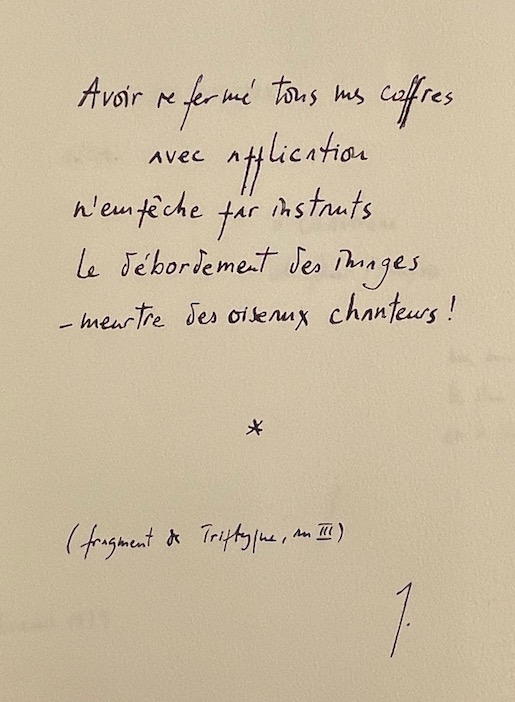 Avoir refermé tous mes coffres
avec application
n'empêche par instants
le débordement des images
– meurtre des oiseaux chanteurs !
*
(fragment de Triptyque, III)
J.